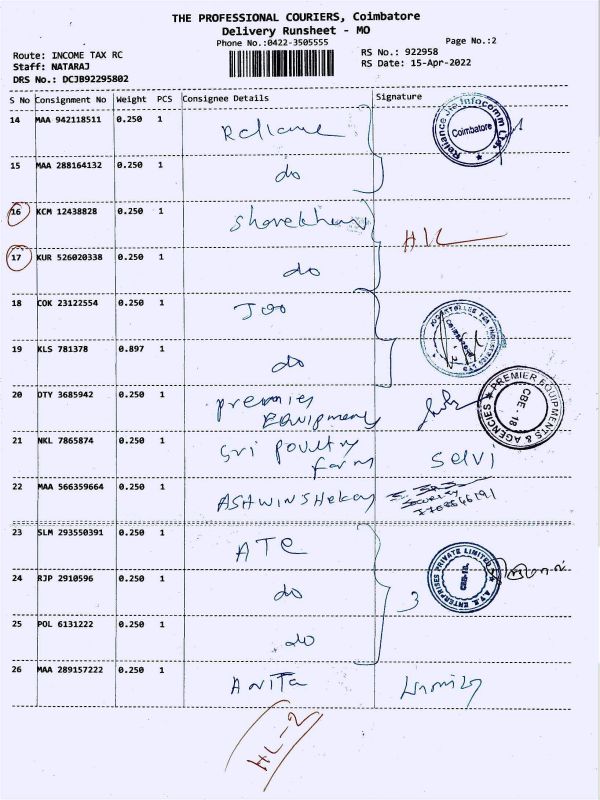 THE PROFESSIONAL COURIERS, Coimbatore
Delivery Runsheet - MO
Phone No.:0422-3505555
Page No.:2
Route: INCOME TAX RC
RS No.: 922958
Staff: NATARAJ
RS Date: 15-Apr-2022
DRS No.: DCJB92295802
S No Consignment No Weight PCS Consignee Details Signature
14 MAA 942118511 0.250 1 Reliance
Reliance Jio Infocomm Ltd. Coimbatore
15 MAA 288164132 0.250 1 do
16 KCM 12438828 0.250 1 Sharekhan
17 KUR 526020338 0.250 1 do
18 COK 23122554 0.250 1
19 KLS 781378 0.897 1 do
20 DTY 3685942 0.250 1 premier
Equipments
PREMIER EQUIPMENTS & AGENCIES CBE - 18
21 NKL 7865874 0.250 1 Sri poultry
farm Selvi
22 MAA 566359664 0.250 1 ASHWINSHEKAR
Security
23 SLM 293550391 0.250 1 ATE
A.T.E. ENTERPRISES PRIVATE LIMITED CBE-18.
24 RJP 2910596 0.250 1 do 3
25 POL 6131222 0.250 1 do
26 MAA 289157222 0.250 1 Anita
HL-2